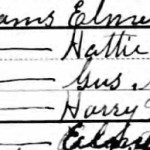 ams Elme
— Hattie
— Gus
— Harry